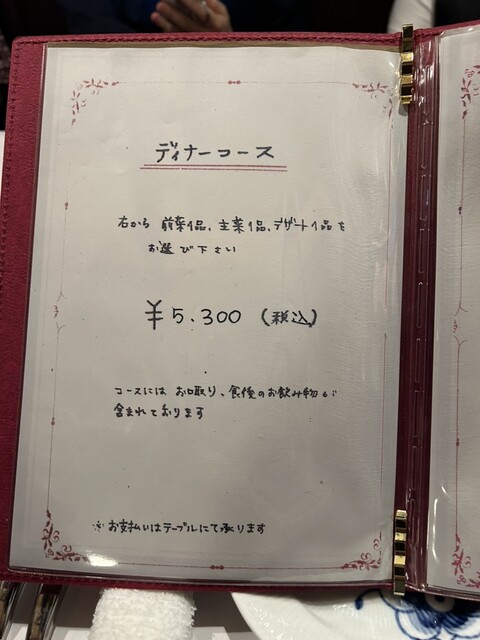 ディナーコース
右から 前菜1品、主菜1品、デザート1品を
お選び下さい
¥5.300 (税込)
コースには お口取り、食後のお飲み物が
含まれております
※お支払いはテーブルにて承ります